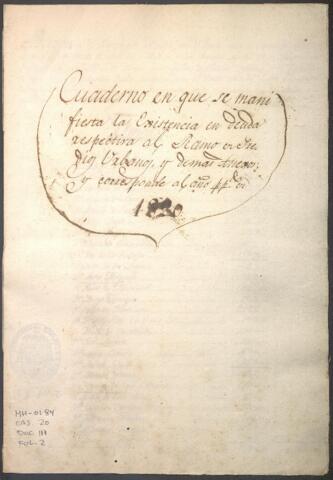 Cuaderno en que se mani
fiesta la Existencia en deuda
respectiva al Ramo de Pre
dios Urbanos, y demas Anexos;
y corresponde al año pp.do de
1820
MH-0184
CAJ. 20
DOC 111
FOL-2